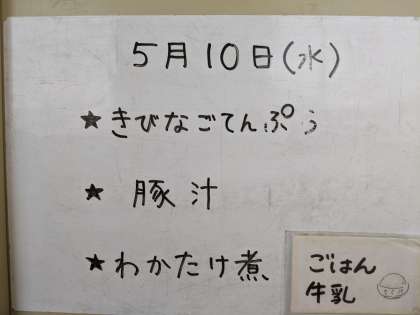 5月10日(水)
★きびなごてんぷら
★豚汁
★わかたけ煮
ごはん
牛乳